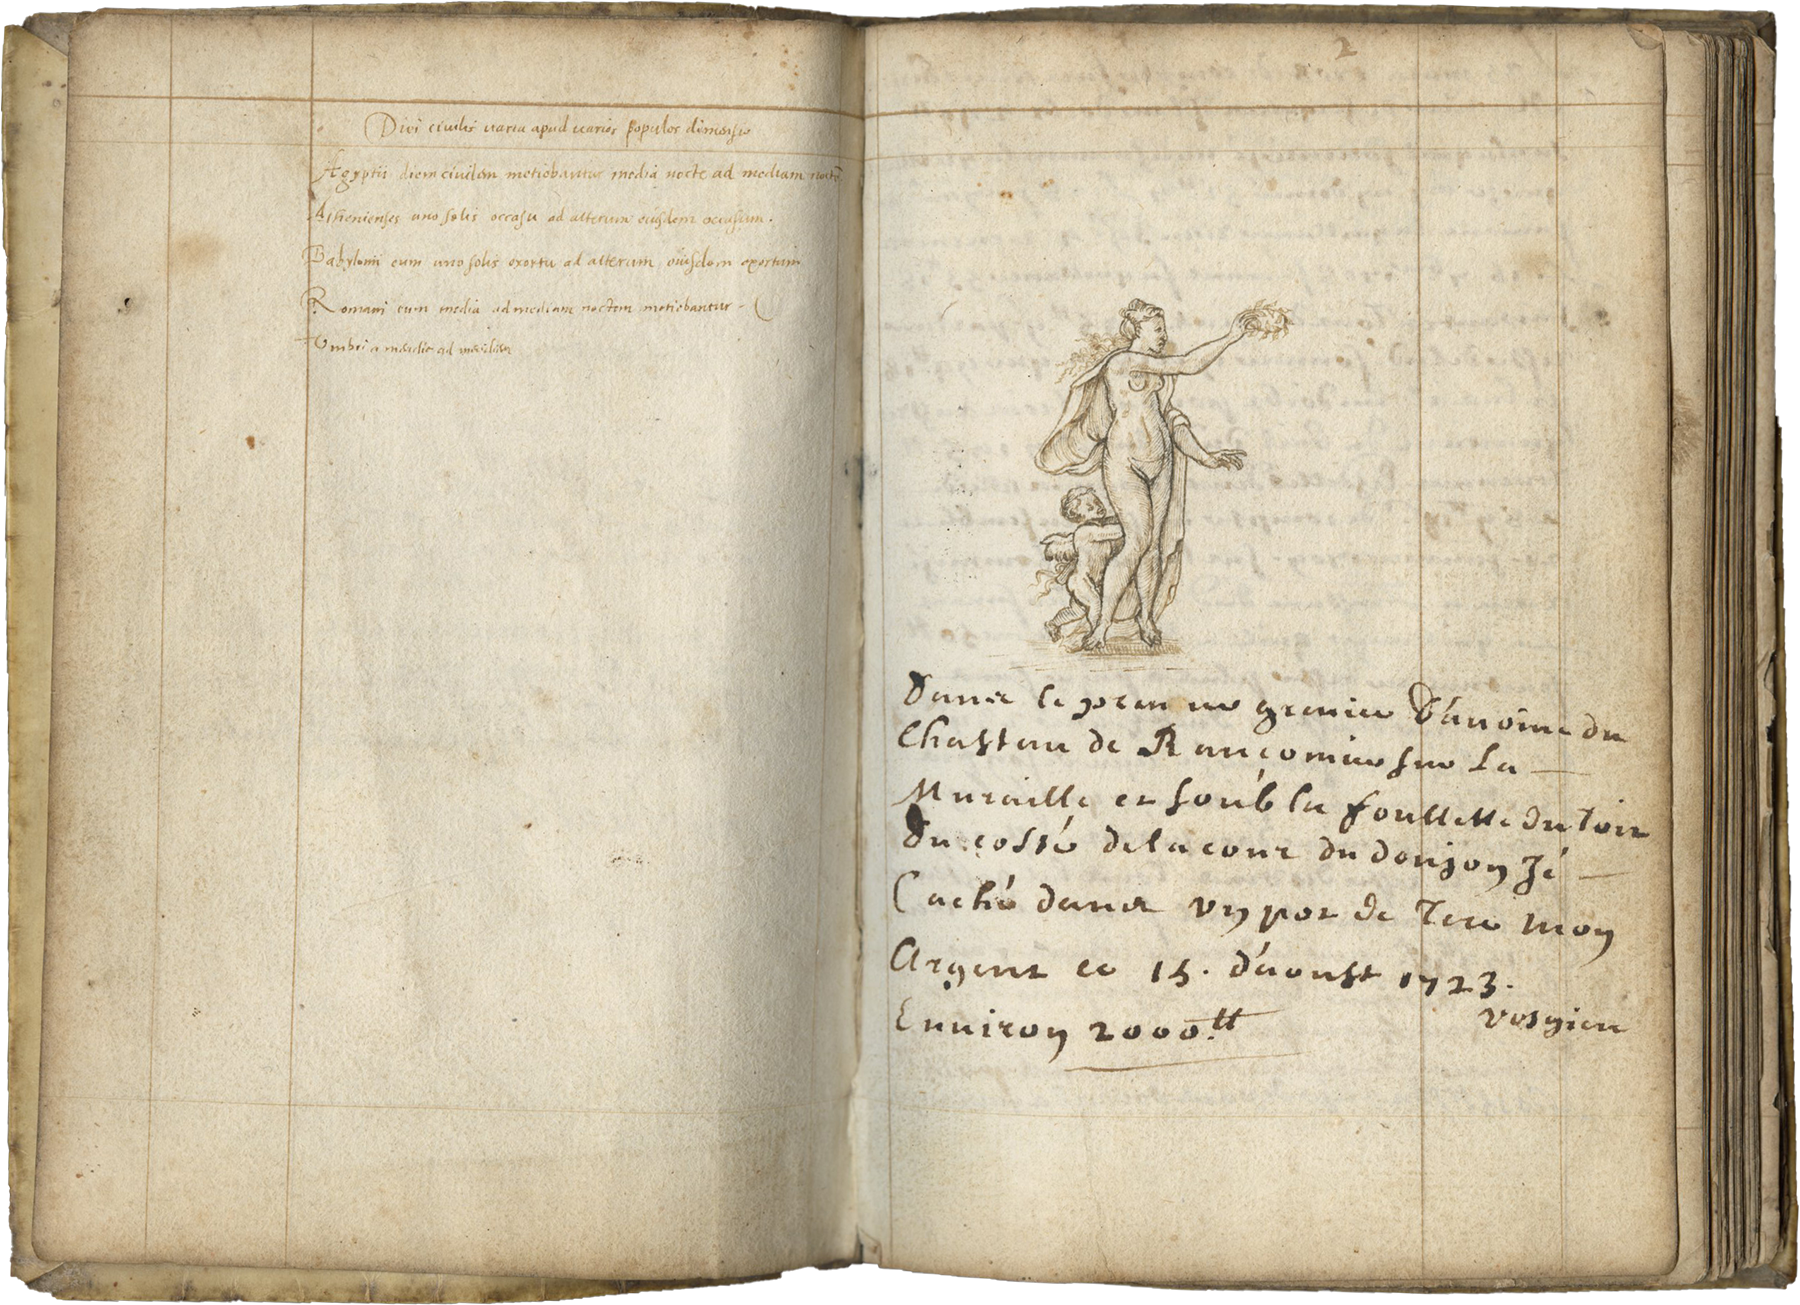 Diei civilis varia apud varios populos dimensio
Ægyptii diem civilem metiebantur mediâ nocte ad mediam nocte
Athenienses uno solis occasu ad alterum eiusdem occasum.
Babylonii eum uno solis exortu ad alterum eiusdem exortum
Romani eum media ad mediam noctem metiebantur -
Umbri a meridie ad meridiem
2
Dans le grenier d'avoine du
Chasteau de Rançonnier sur La
Muraille et soub la du Toit
Du costé de la cour du donjon Jé
Caché dans un pot de Tere mon
Argent ce 15. d'aoust 1723.
Environ 2000.tt
Vosgien